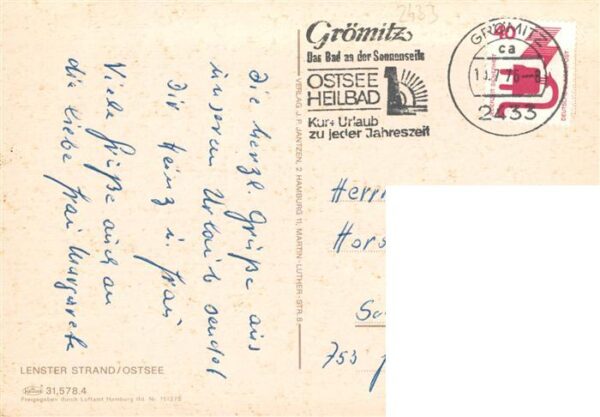 2433
Grömitz
Das Bad an der Sonnenseite
OSTSEE
HEILBAD
Kur + Urlaub
zu jeder Jahreszeit
GRÖMITZ
ca
76-8
2433
40
Die herzl. Grüße aus
unserem Urlaub sendet
Dir Heinz u. Frau
Viele Grüße auch an
die liebe Frau Margarete
VERLAG J. P. JANTZEN, 2 HAMBURG 11, MARTIN-LUTHER-STR. 8
Herrn
Hors
753
LENSTER STRAND/OSTSEE
31,578.4
Freigegeben durch Luftamt Hamburg